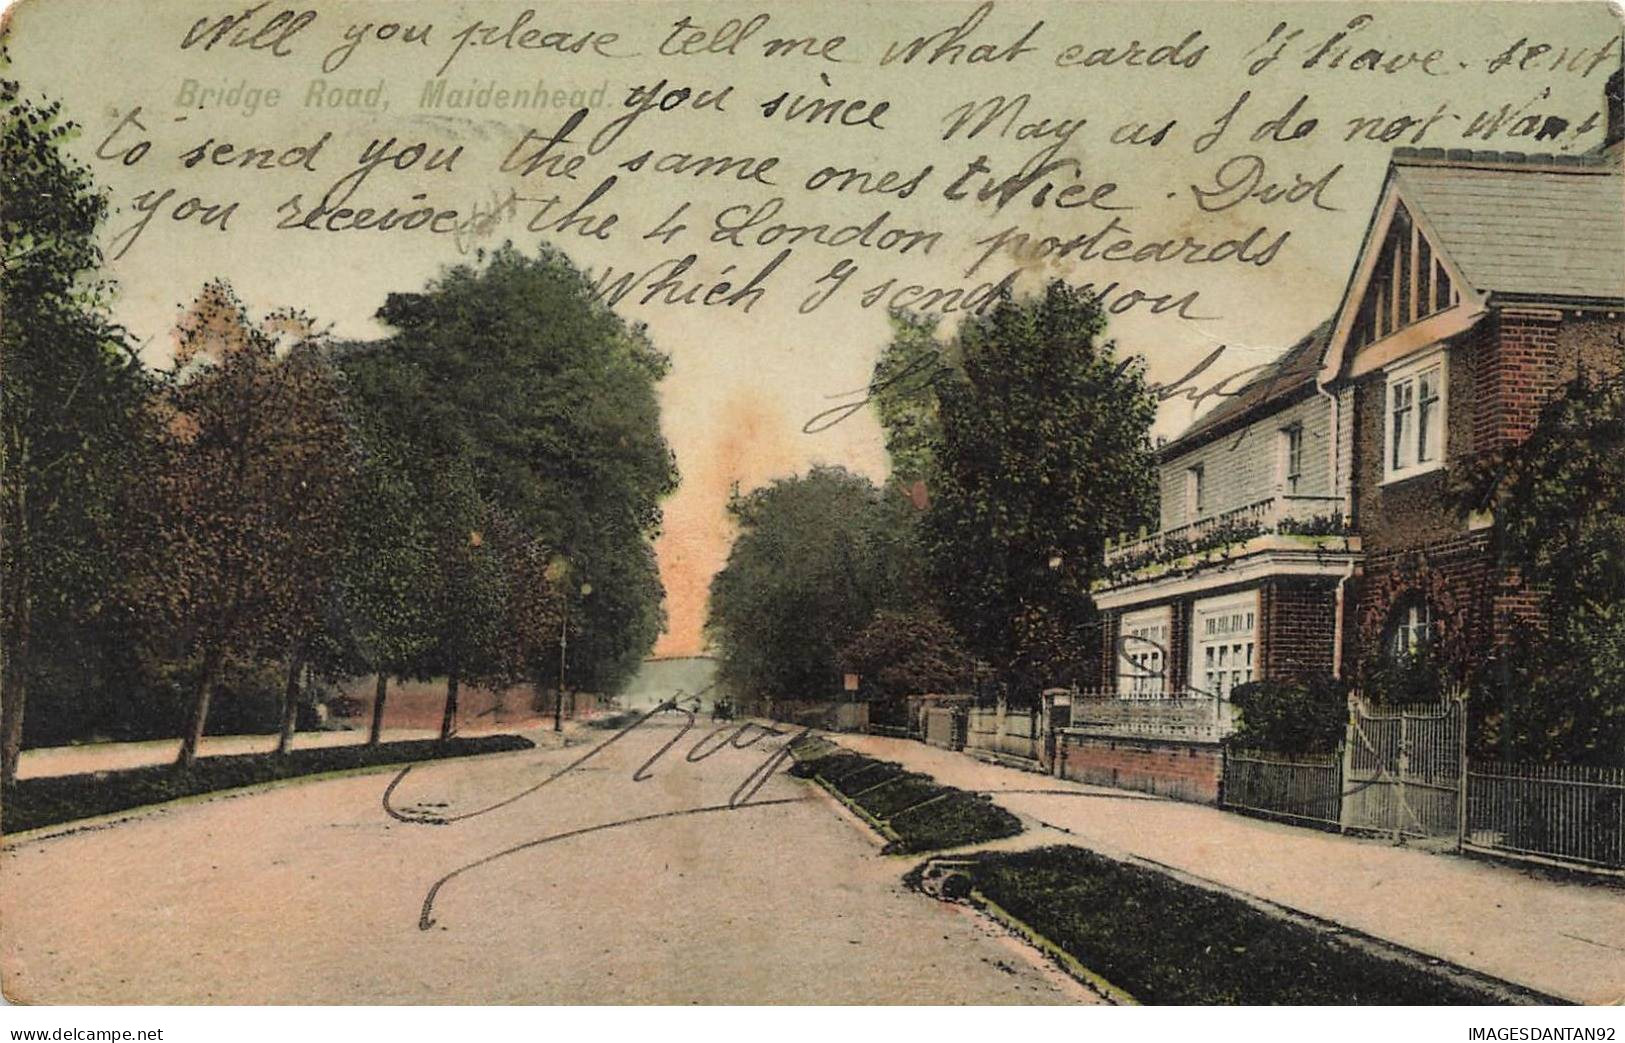 Will you please tell me what cards I have sent
Bridge Road, Maidenhead.
you since May as I do not want
to send you the same ones twice. Did
you receive the 4 London postcards
which I send you
www.delcampe.net
IMAGESDANTAN92